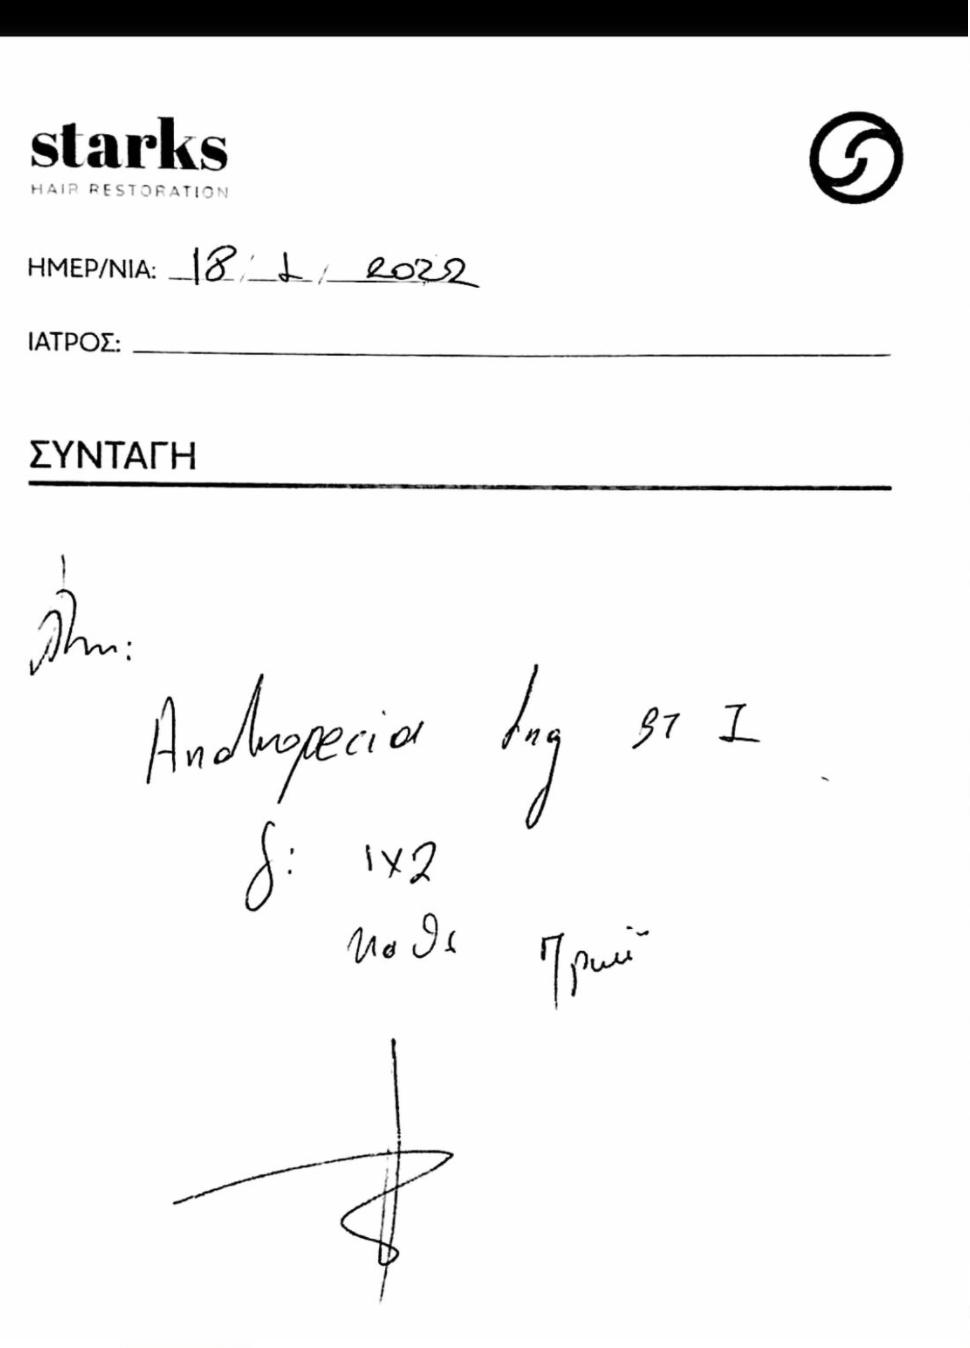 starks
HAIR RESTORATION
ΗΜΕΡ/ΝΙΑ: 18/1/2022
ΙΑΤΡΟΣ:
ΣΥΝΤΑΓΗ
Andropecia 1mg ΒΤ I
δ: 1x2
καθε πρωϊ